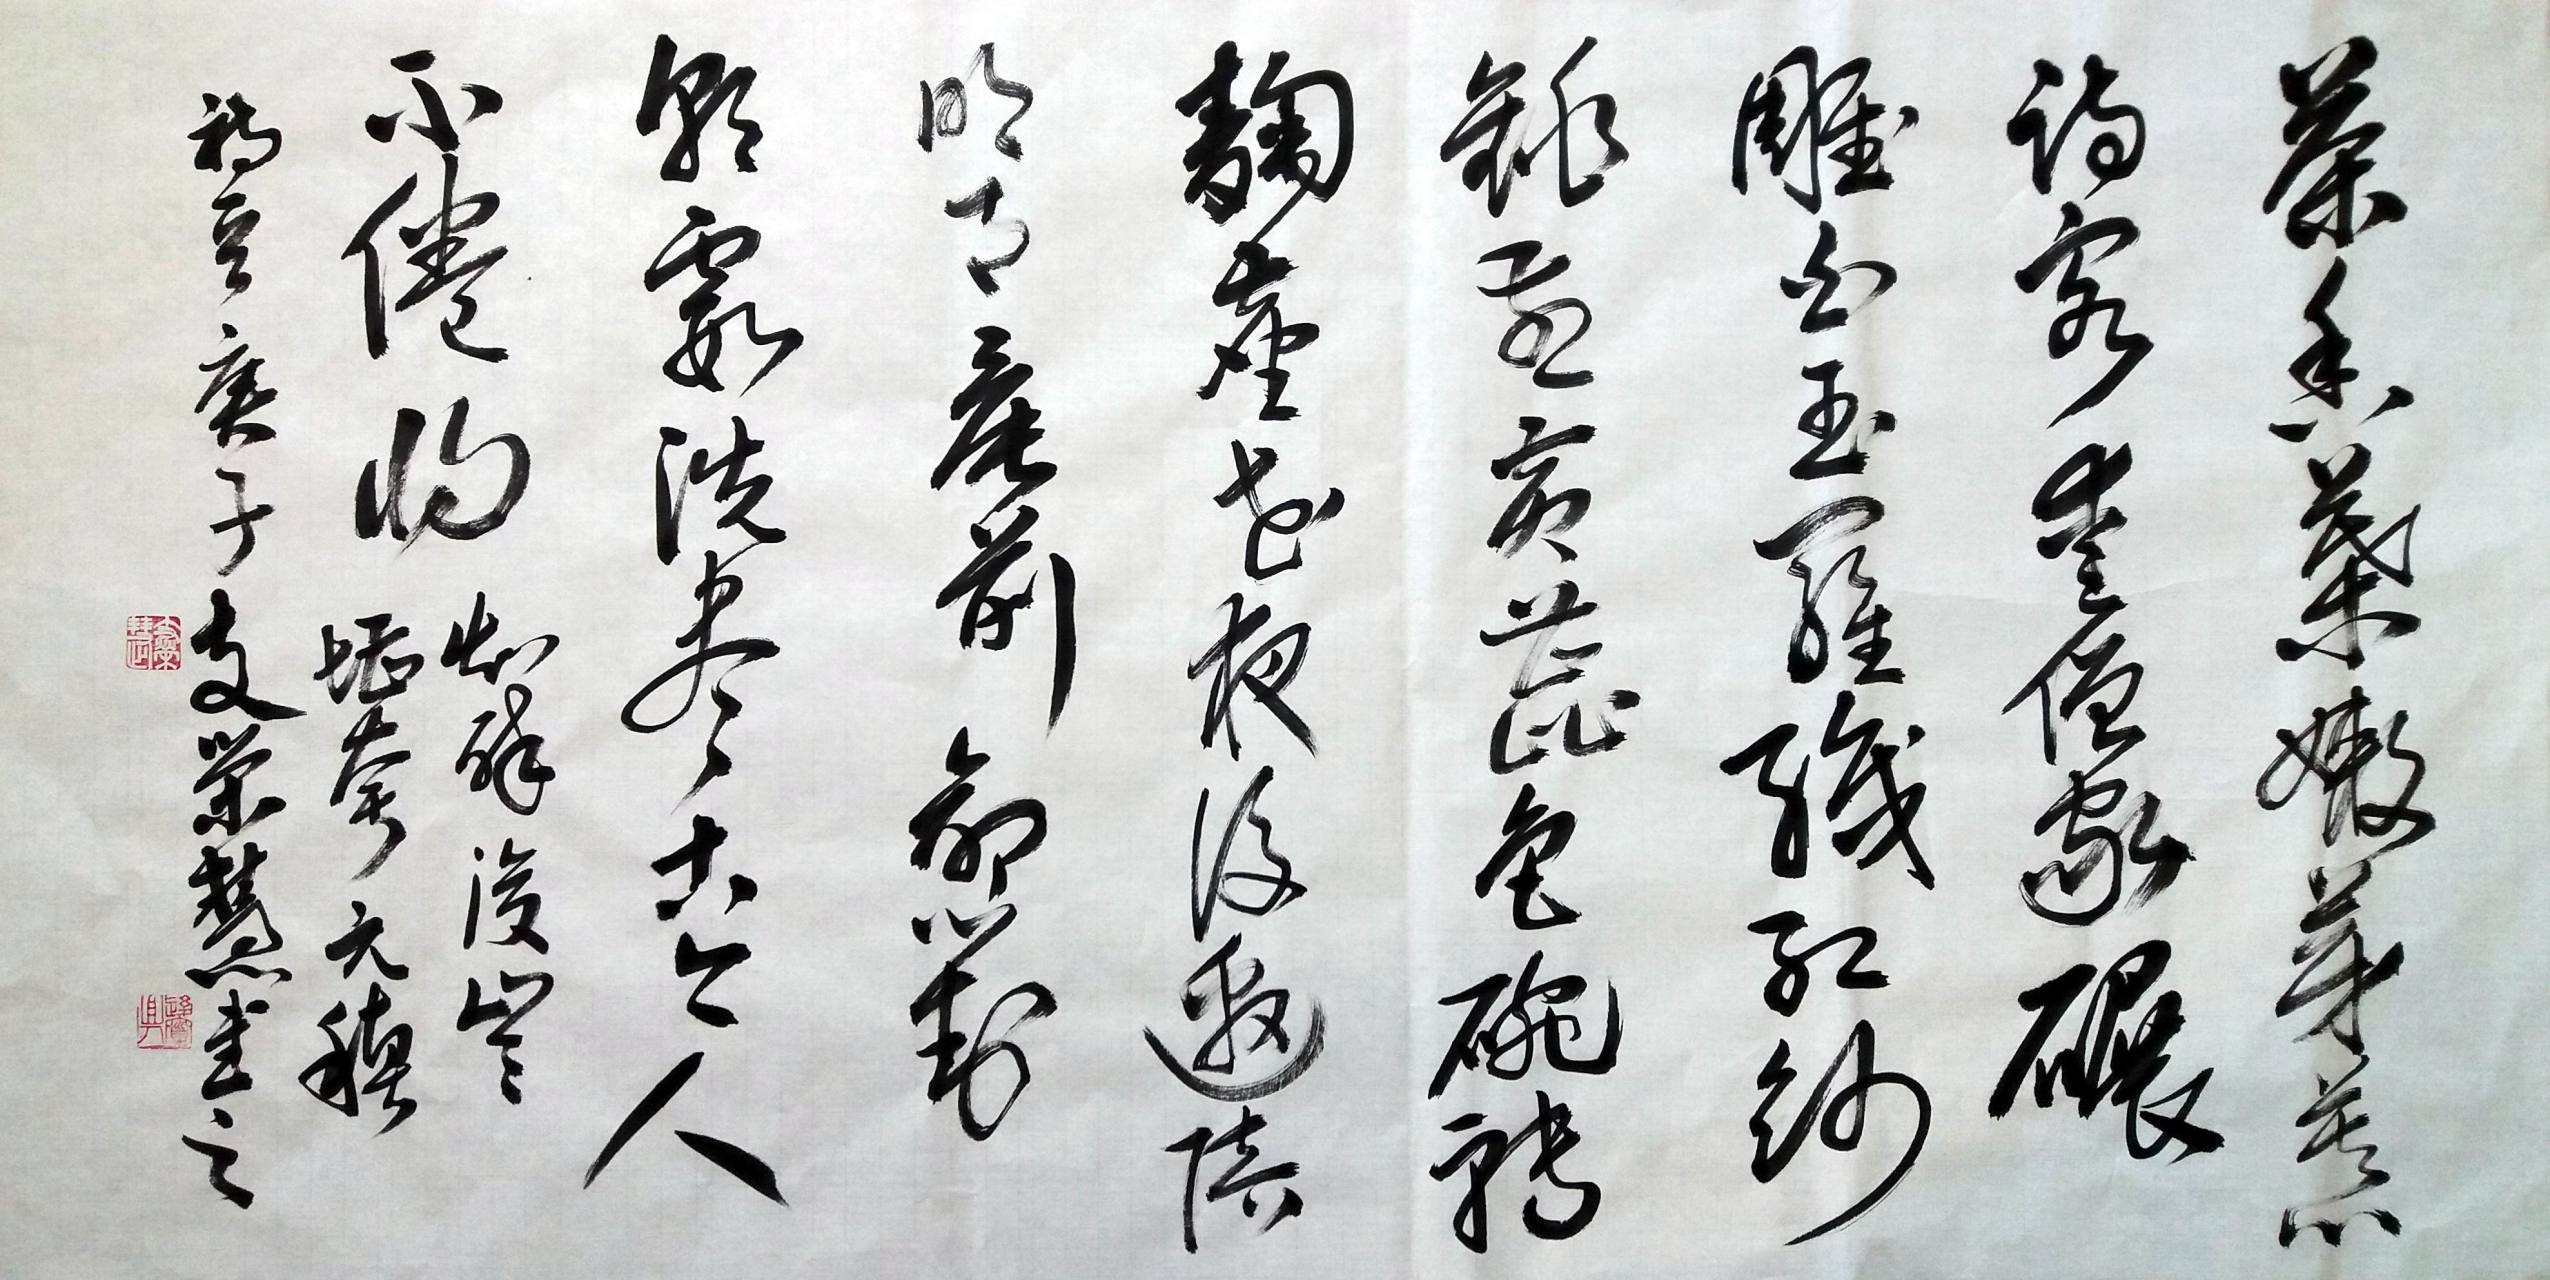 茶香葉嫩芽慕
詩客愛僧家碾
雕白玉羅織紅紗
銚煎黃蕊色碗轉
麴塵花夜後邀陪
明月晨前命對
朝霞洗盡古今人
不倦將
知醉後豈
堪夸元稹
庚子支榮慧書之